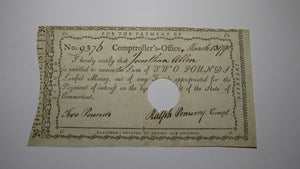 FOR THE PAYMENT OF
No. 9376 Comptroller's-Office, March 13 1790
I hereby certify that Jonathan Allen
is entitled to receive the Sum of TWO POUNDS
Lawful Money, out of any appropriated for the
Payment of interest on the State of
Connecticut.
Two Pounds Ralph Pomeroy, Compt.
HARTFORD: PRINTED BY HUDSON AND GOODWIN.